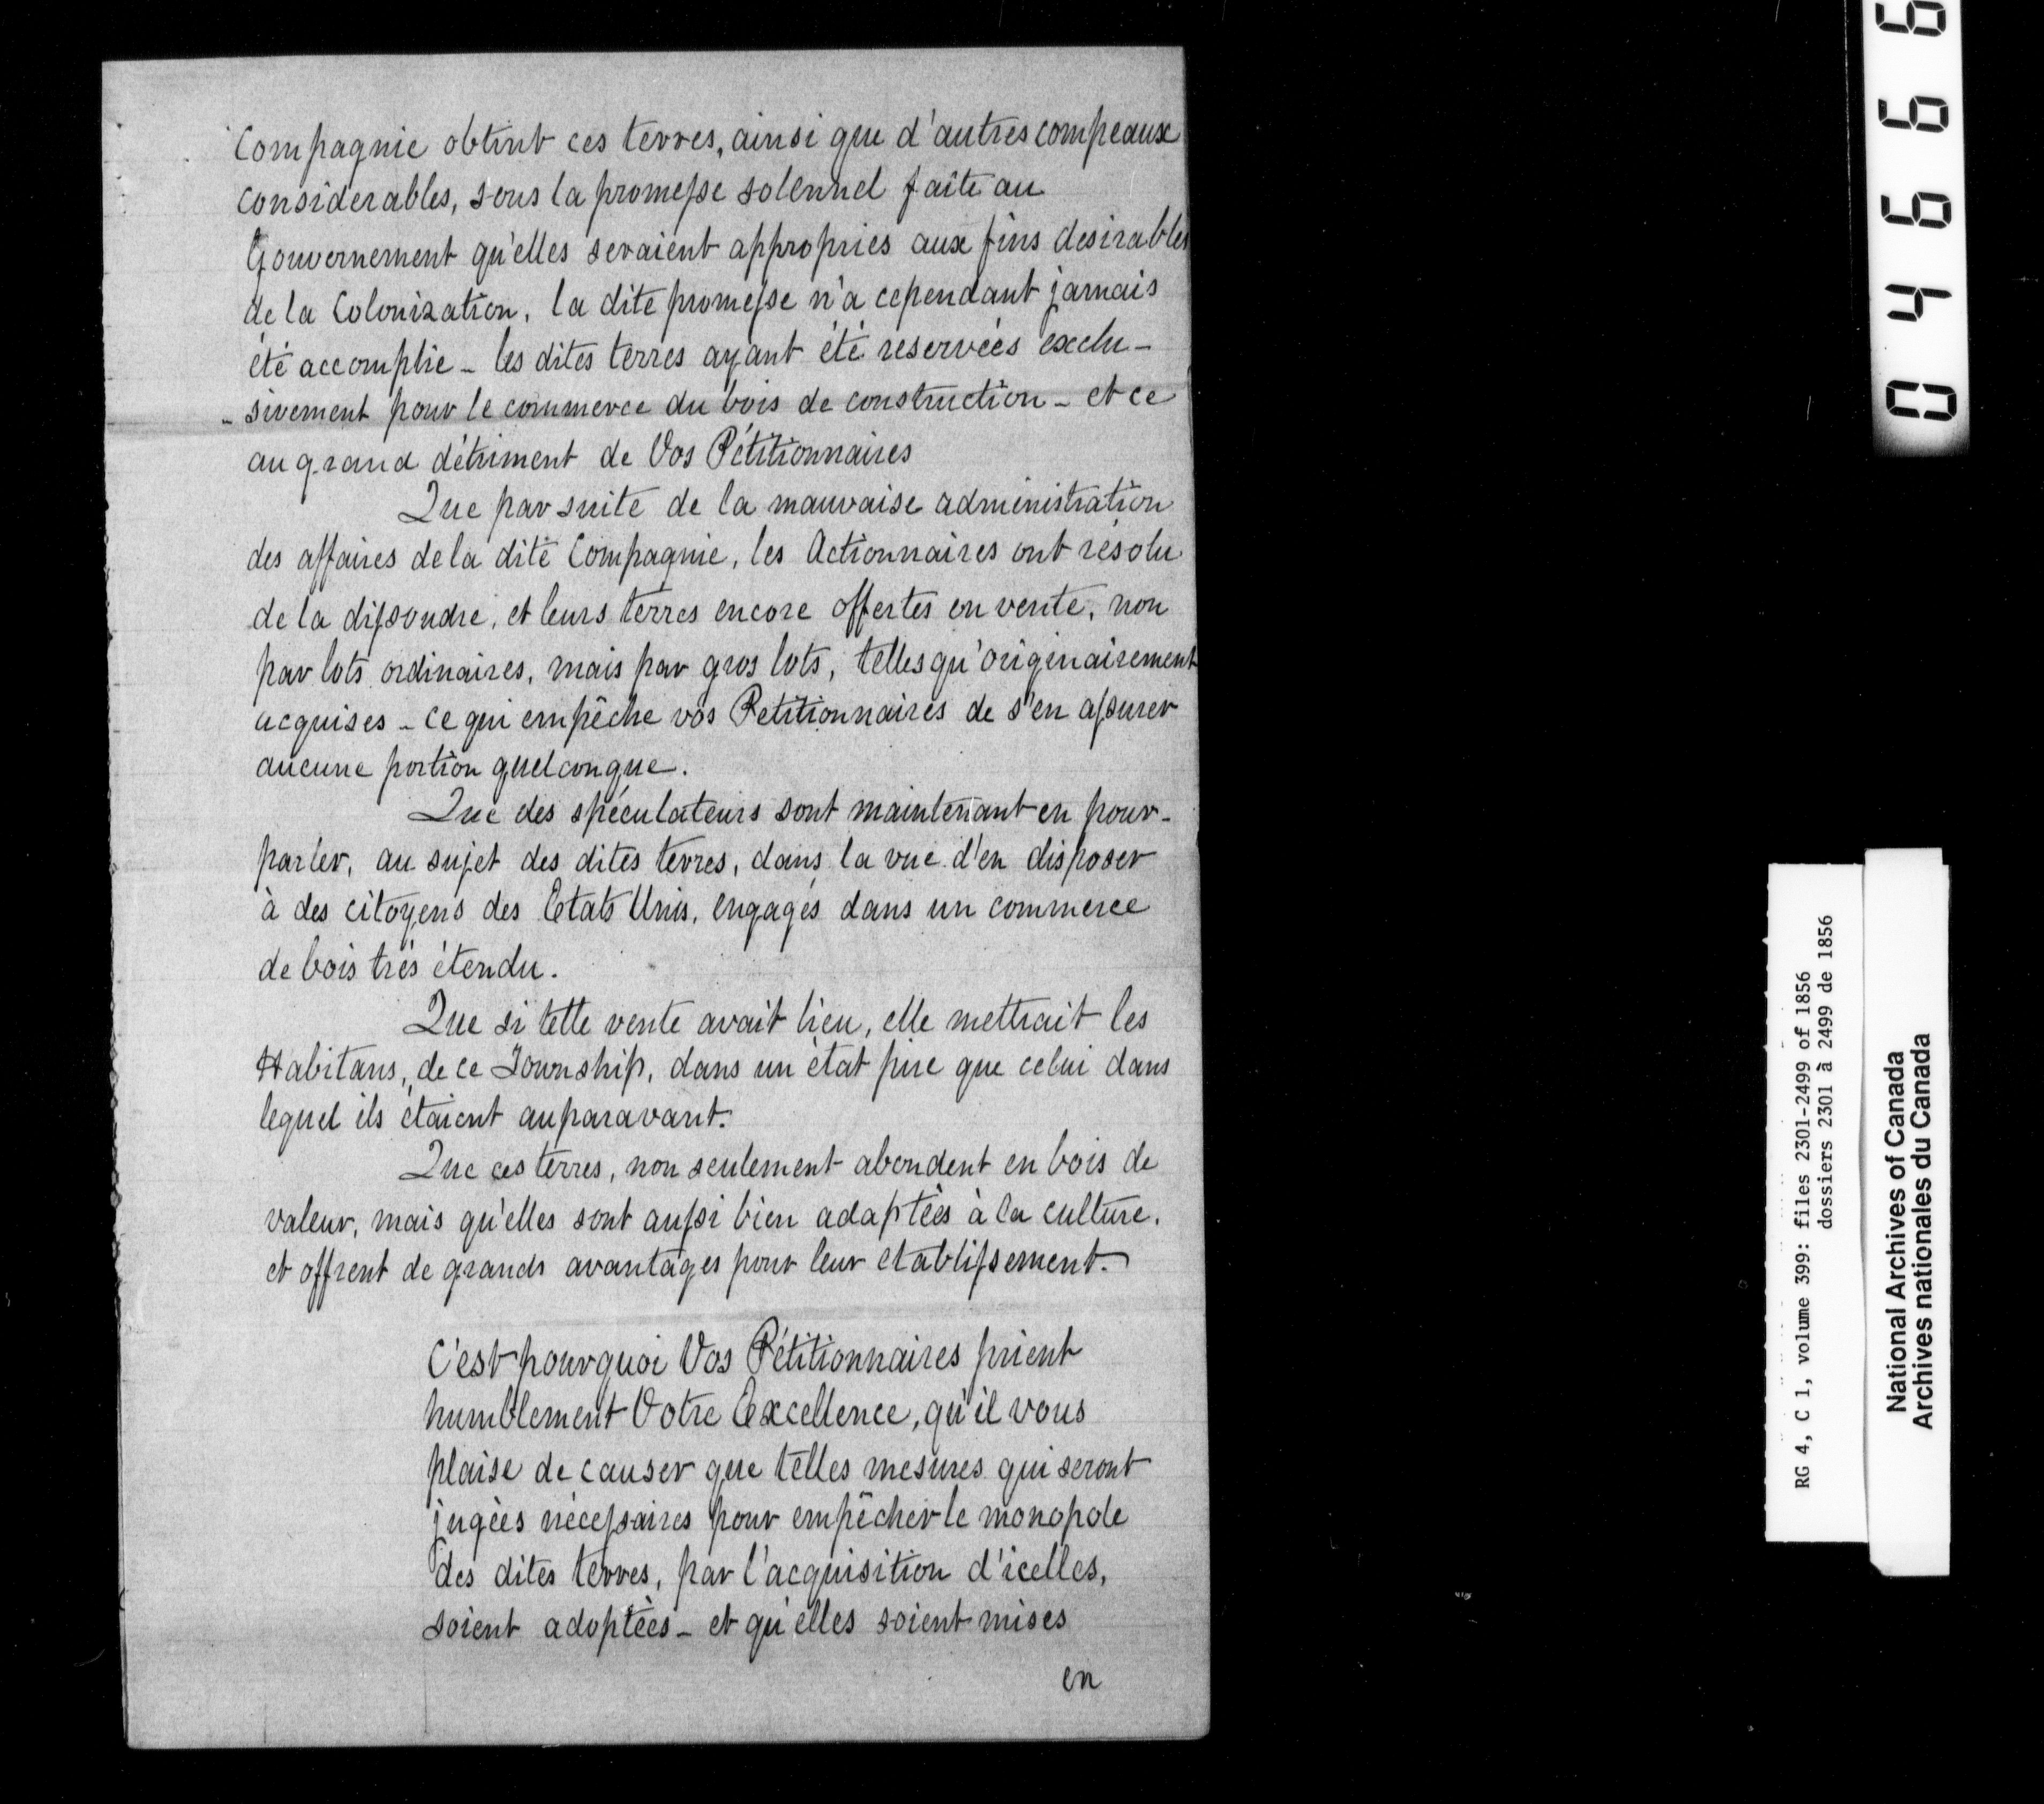 Compagnie obtint ces terres, ainsi que d'autres compeaux
considerables, sous la promesse solennel faite au
Gouvernement qu'elles seraient appropriés aux fins desirables
de la Colonization, la dite promesse n'a cependant jamais
été accomplie - les dites terres ayant été réservées exclu-
- sivement pour le commerce du bois de construction - et ce
au grand détriment de Vos Pétitionnaires
Que par suite de la mauvaise administration
des affaires de la dite Compagnie, les Actionnaires ont résolu
de la dissoudre, et leurs terres encore offertes en vente, non
par lots ordinaires, mais par gros lots, telles qu'originairement
acquises - ce qui empêche vos Petitionnaires de s'en assurer
aucune portion quelconque.
Que des spéculateurs sont maintenant en pour-
parler, au sujet des dites terres, dans la vue d'en disposer
à des citoyens des Etats Unis, engagés dans un commerce
de bois très étendu.
Que si telle vente avait lieu, elle mettrait les
Habitans, de ce Township, dans un état pire que celui dans
lequel ils étaient auparavant.
Que ces terres, non seulement abondent en bois de
valeur, mais qu'elles sont aussi bien adaptées à la culture,
et offrent de grands avantages pour leur etablissement.
C'est pourquoi Vos Pétitionnaires prient
humblement Votre Excellence, qu'il vous
plaise de causer que telles mesures qui seront
jugées nécessaires pour empêcher le monopole
des dites terres, par l'acquisition d'icelles,
soient adoptées - et qu'elles soient mises
en
04666
RG 4, C 1, volume 399: files 2301-2499 of 1856
dossiers 2301 à 2499 de 1856
National Archives of Canada
Archives nationales du Canada